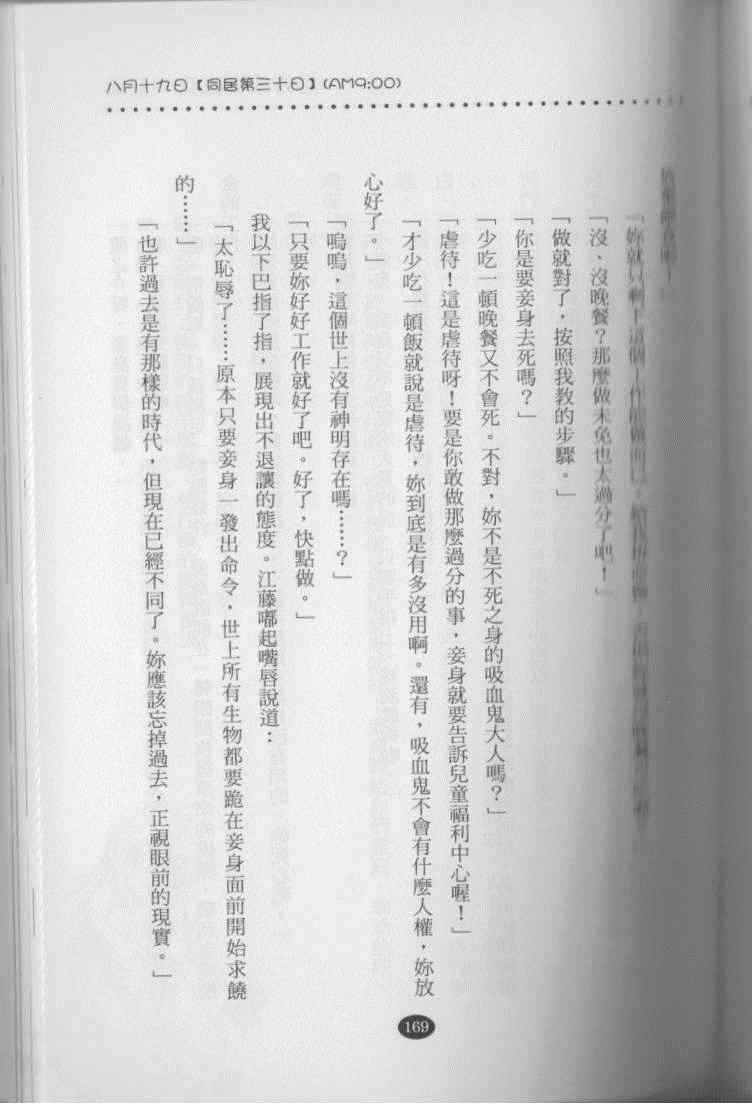 八月十九日【同居第三十日】(AM9:00)
「妳就只剩下這個
「沒、沒晚餐？那麼做未免也太過分了吧！」
「做就對了，按照我教的步驟。」
「你是要妾身去死嗎？」
「少吃一頓晚餐又不會死。不對，妳不是不死之身的吸血鬼大人嗎？」
「虐待！這是虐待呀！要是你敢做那麼過分的事，妾身就要告訴兒童福利中心喔！」
「才少吃一頓飯就說是虐待，妳到底是有多沒用啊。還有，吸血鬼不會有什麼人權，妳放
心好了。」
「嗚嗚，這個世上沒有神明存在嗎……？」
「只要妳好好工作就好了吧。好了，快點做。」
我以下巴指了指，展現出不退讓的態度。江藤嘟起嘴唇說道：
「太恥辱了……原本只要妾身一發出命令，世上所有生物都要跪在妾身面前開始求饒
的……」
「也許過去是有那樣的時代，但現在已經不同了。妳應該忘掉過去，正視眼前的現實。」
169